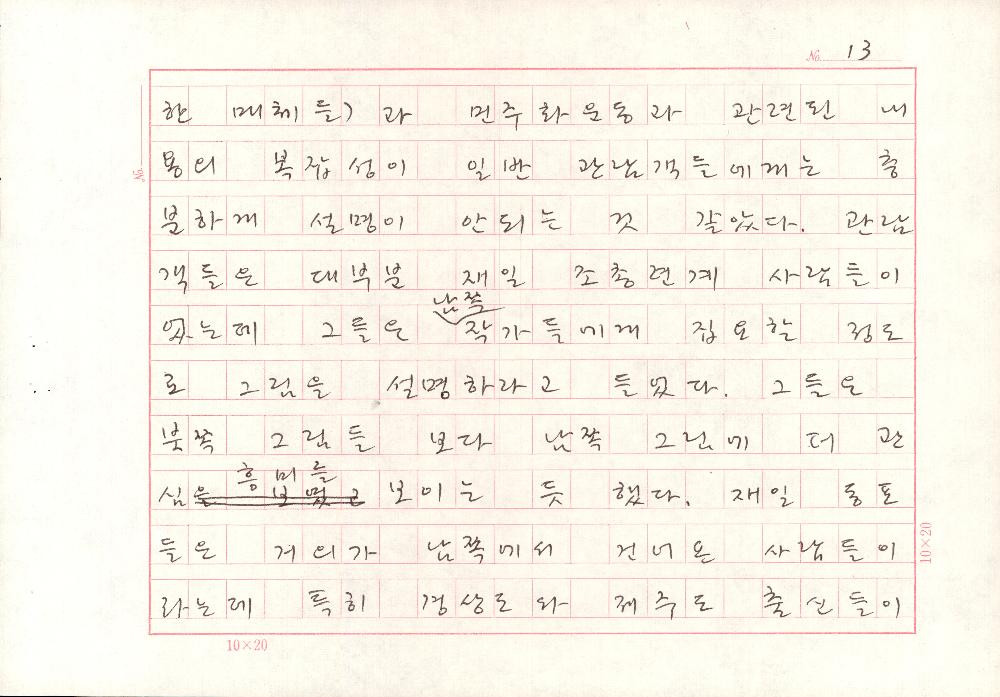 No. 13
No.
한 매체들)과 민주화운동과 관련된 내
용의 복잡성이 일반 관람객들에게는 충
분하게 설명이 안되는 것 같았다. 관람
객들은 대부분 재일 조총련계 사람들이
남쪽
었는데 그들은 작가들에게 집요할 정도
로 그림을 설명하라고 들었다. 그들은
북쪽 그림들 보다 남쪽 그림에 더 관
흥미를
심은 보였고 보이는 듯 했다. 재일 동포
들은 거의가 남쪽에서 건너온 사람들이
라는데 특히 경상도와 제주도 출신들이
10×20
10×20